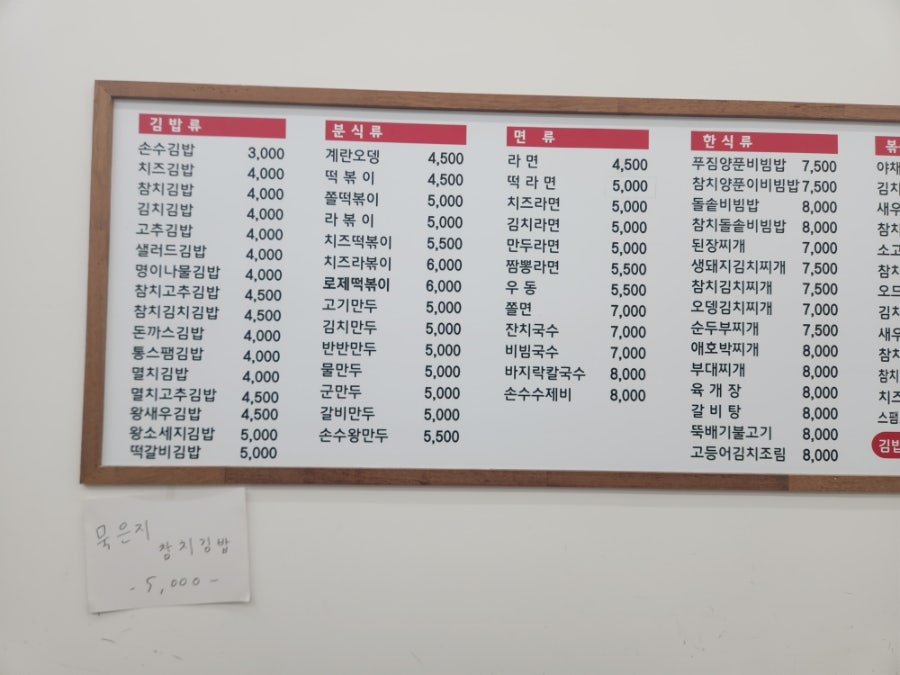 김밥류
손수김밥 3,000
치즈김밥 4,000
참치김밥 4,000
김치김밥 4,000
고추김밥 4,000
샐러드김밥 4,000
명이나물김밥 4,000
참치고추김밥 4,500
참치김치김밥 4,500
돈까스김밥 4,000
통스팸김밥 4,000
멸치김밥 4,000
멸치고추김밥 4,500
왕새우김밥 4,500
왕소세지김밥 5,000
떡갈비김밥 5,000
분식류
계란오뎅 4,500
떡 볶 이 4,500
쫄떡볶이 5,000
라 볶 이 5,000
치즈떡볶이 5,500
치즈라볶이 6,000
로제떡볶이 6,000
고기만두 5,000
김치만두 5,000
반반만두 5,000
물만두 5,000
군만두 5,000
갈비만두 5,000
손수왕만두 5,500
면 류
라 면 4,500
떡 라 면 5,000
치즈라면 5,000
김치라면 5,000
만두라면 5,000
짬뽕라면 5,500
우 동 5,500
쫄면 7,000
잔치국수 7,000
비빔국수 7,000
바지락칼국수 8,000
손수수제비 8,000
한식류
푸짐양푼비빔밥 7,500
참치양푼이비빔밥 7,500
돌솥비빔밥 8,000
참치돌솥비빔밥 8,000
된장찌개 7,000
생돼지김치찌개 7,500
참치김치찌개 7,500
오뎅김치찌개 7,000
순두부찌개 7,500
애호박찌개 8,000
부대찌개 8,000
육 개 장 8,000
갈 비 탕 8,000
뚝배기불고기 8,000
고등어김치조림 8,000
볶
야채
김치
새우
참치
소고
참치
오므
김치
새우
참치
참치
치즈
스팸
김밥
묵은지
참치김밥
-5,000-